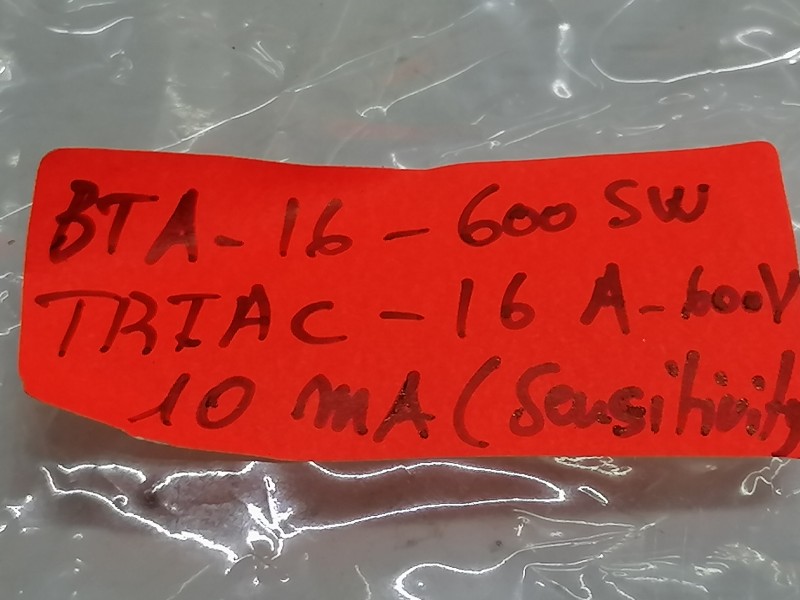 BTA-16-600 SW
TRIAC-16 A-600V
10 mA (Sensitivity